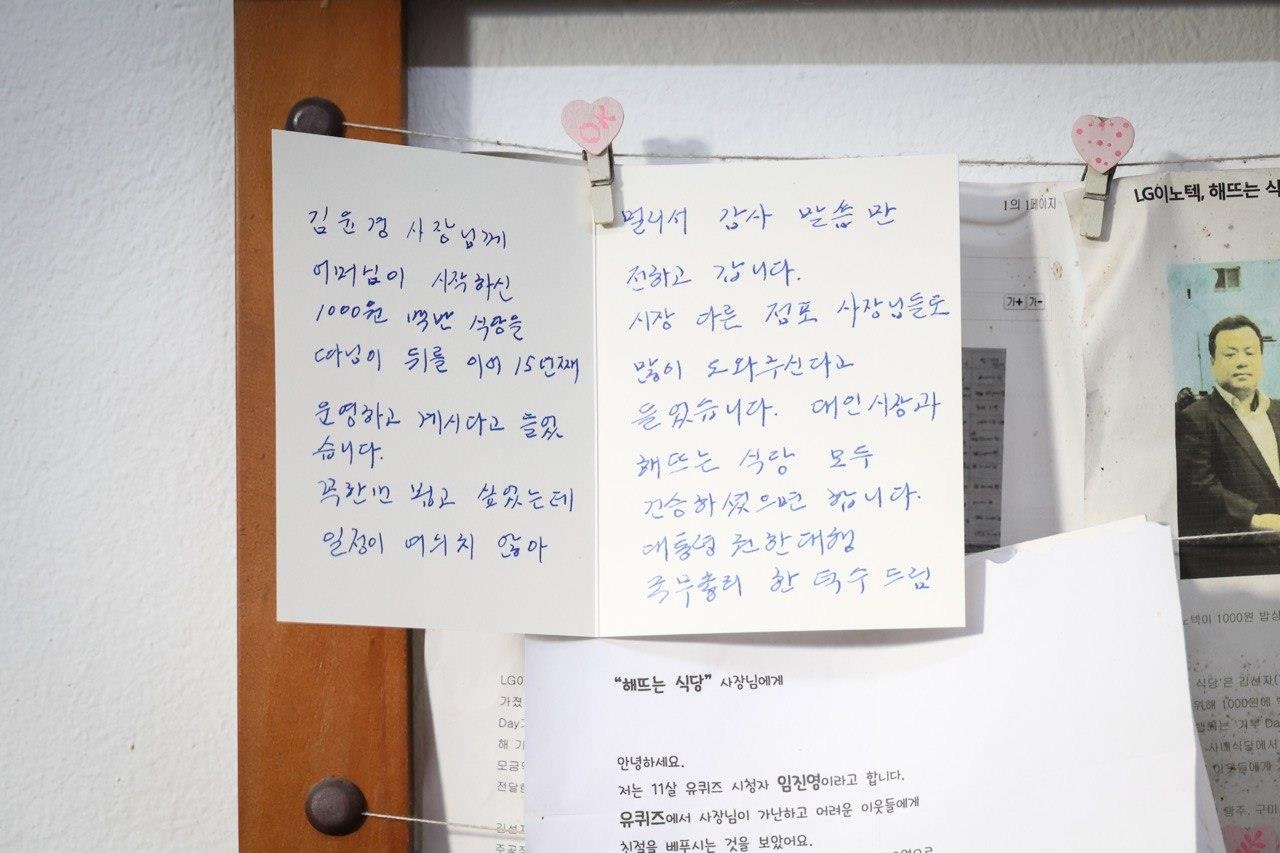 김윤경 사장님께
어머님이 시작하신
1000원 백반 식당을
따님이 뒤를 이어 15년째
운영하고 계시다고 들었
습니다.
꼭한번 뵙고 싶었는데
일정이 여의치 않아
멀리서 감사 말씀만
전하고 갑니다.
시장 다른 점포 사장님들도
많이 도와주신다고
들었습니다. 대인시장과
해뜨는 식당 모두
건승하셨으면 합니다.
대통령 권한대행
국무총리 한덕수 드림
OK
1의 1페이지
가+ 가-
LG이노텍, 해뜨는 식
"해뜨는 식당" 사장님에게
안녕하세요.
저는 11살 유퀴즈 시청자 임진영이라고 합니다.
유퀴즈에서 사장님이 가난하고 어려운 이웃들에게
친절을 베푸시는 것을 보았어요.
LG이
가졌
Day
해 기
모금
전달
김선
노텍이 1000원 밥상
식당'은 김선자(
위해 1000원에
사내식당에서
이웃들에게
탕주, 구미